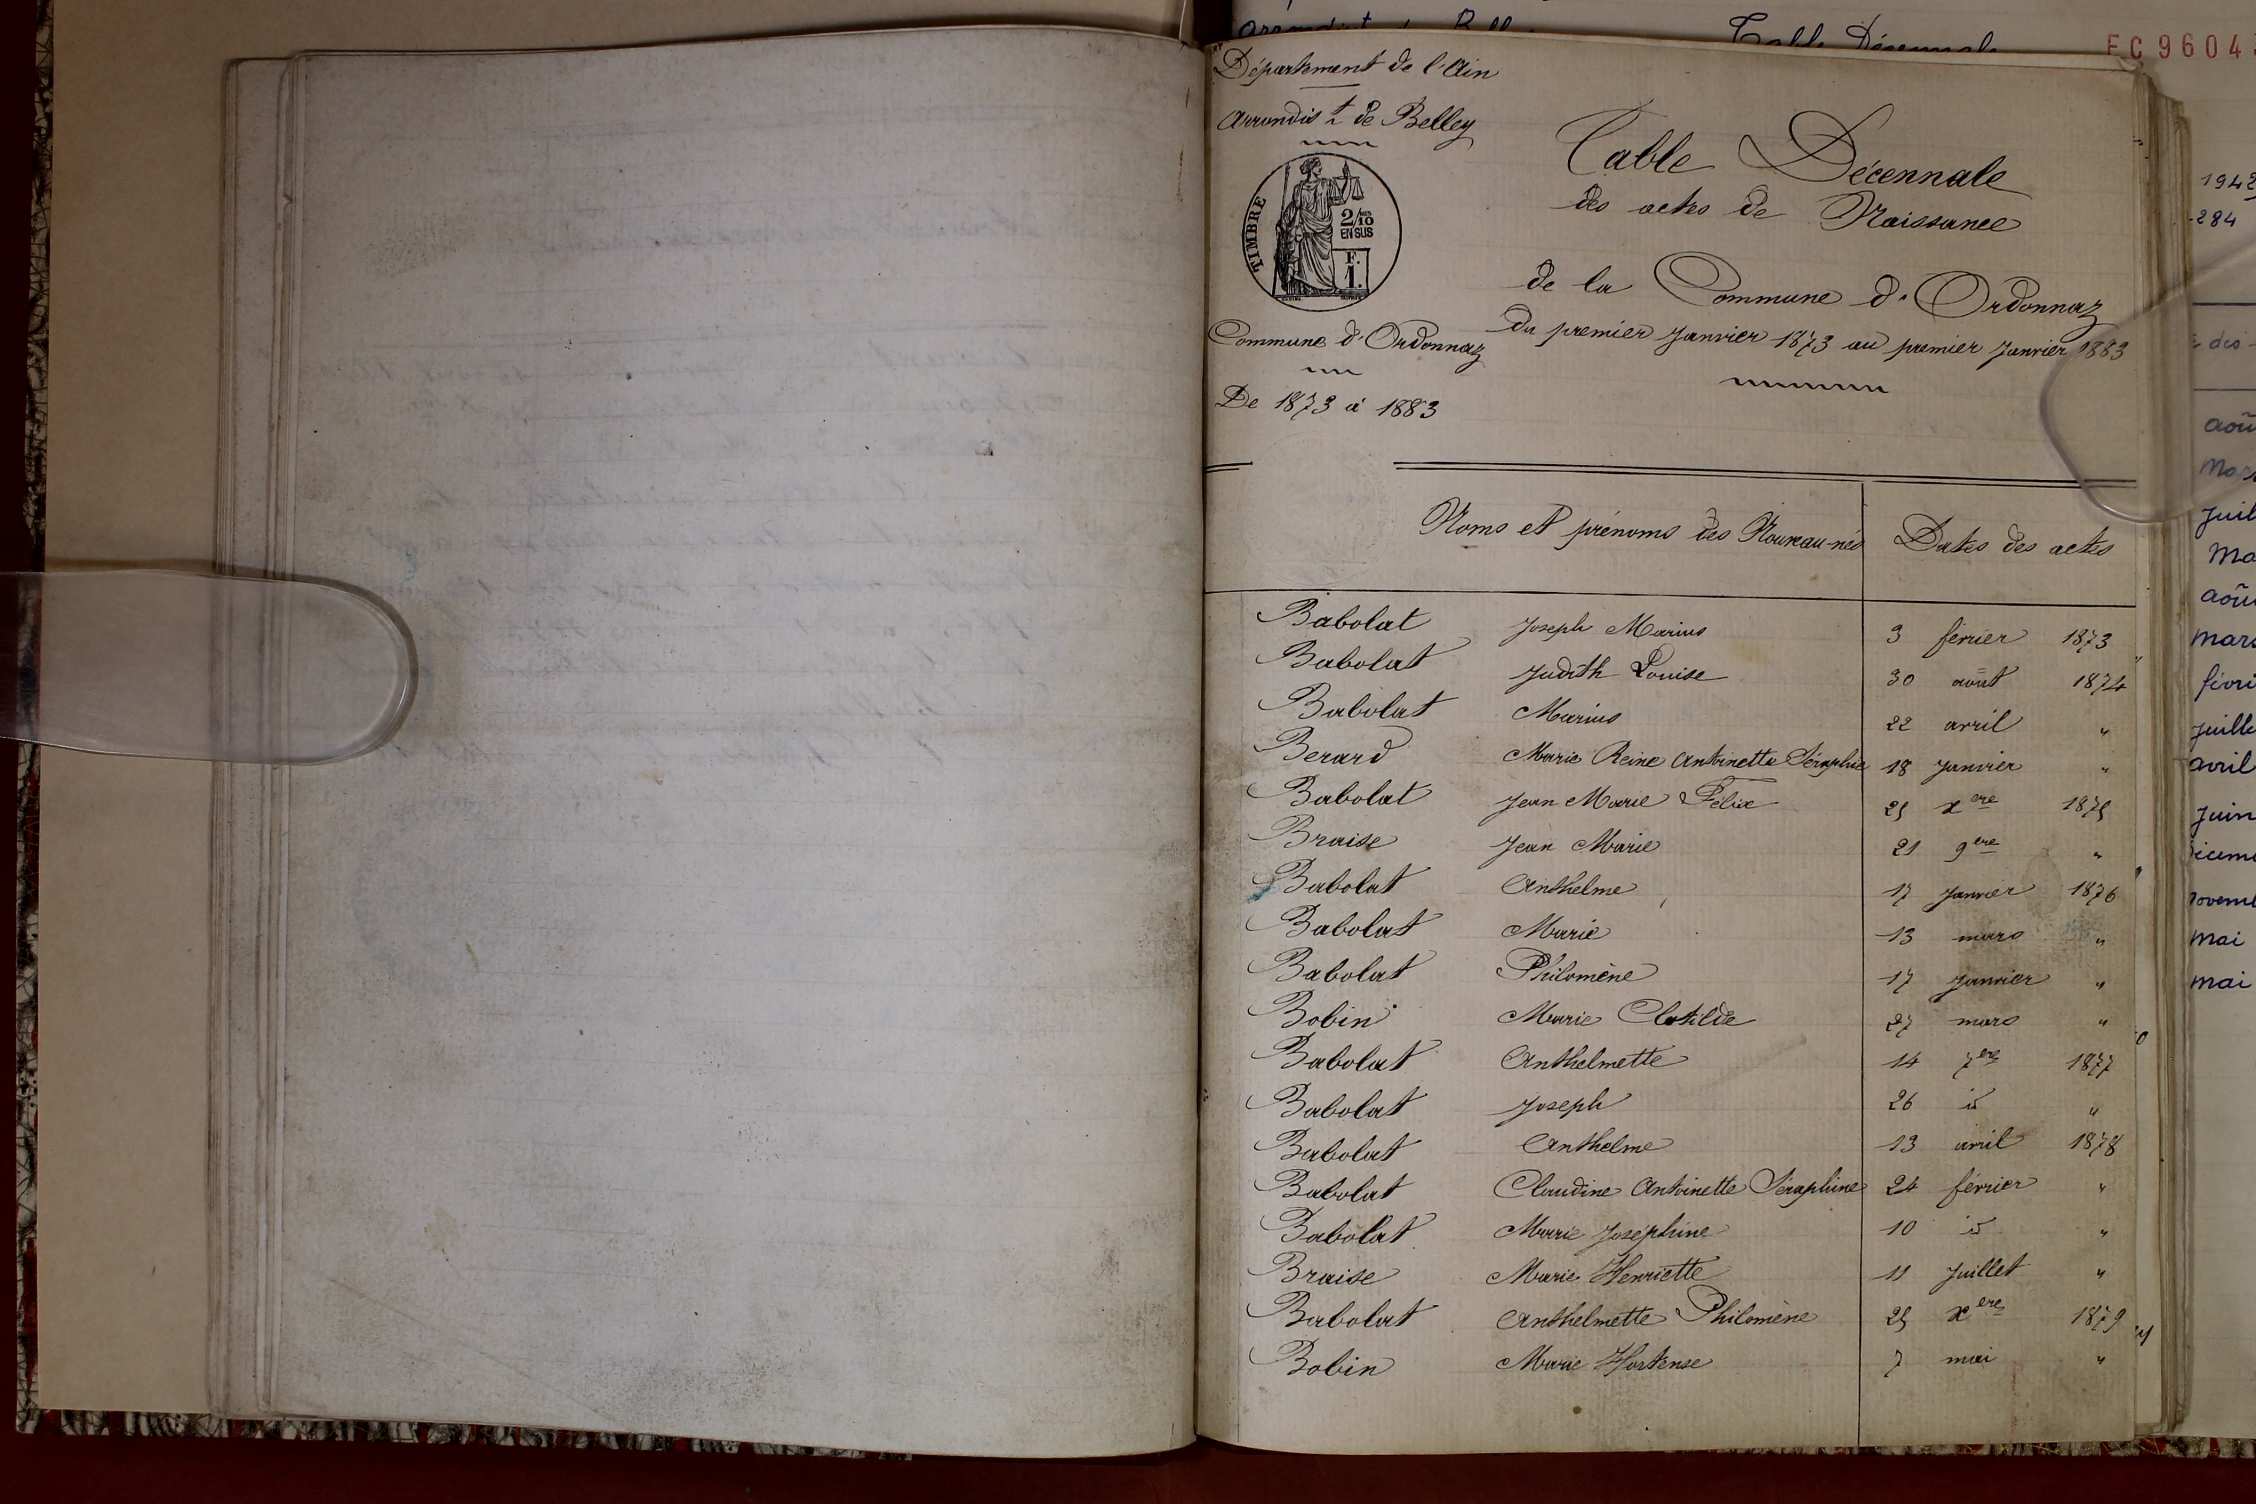 Département de l'Ain
Arrondis t de Belley
TIMBRE
2/10
EN SUS
F.
1.
Commune d'Ordonnaz
De 1873 à 1883
Table Décennale
des actes de Naissance
de la Commune d'Ordonnaz
du premier Janvier 1873 au premier Janvier 1883
Noms et prénoms des Nouveau-nés Dates des actes
Babolat Joseph Marius 3 février 1873
Babolat Judith Louise 30 août 1874
Babolat Marius 22 avril "
Berard Marie Reine Antoinette Séraphie 18 Janvier "
Babolat Jean Marie Félix 25 xere 1875
Braise Jean Marie 21 9ere "
Babolat Anthelme 17 Janvier 1876
Babolat Marie 13 mars "
Babolat Philomène 17 Janvier "
Bobin Marie Clotilde 27 mars "
Babolat Anthelmette 14 7ere 1877
Babolat Joseph 26 id "
Babolat Anthelme 13 avril 1878
Babolat Claudine Antoinette Séraphine 24 février "
Babolat Marie Joséphine 10 id "
Braise Marie Henriette 11 Juillet "
Babolat Anthelmette Philomène 25 xere 1879
Bobin Marie Hortense 7 mai "
Table Décennale
EC 9604
1942
284
aoû
Mars
Juil
Ma
aoû
mars
févri
Juille
avril
Juin
écem
ovem
mai
mai